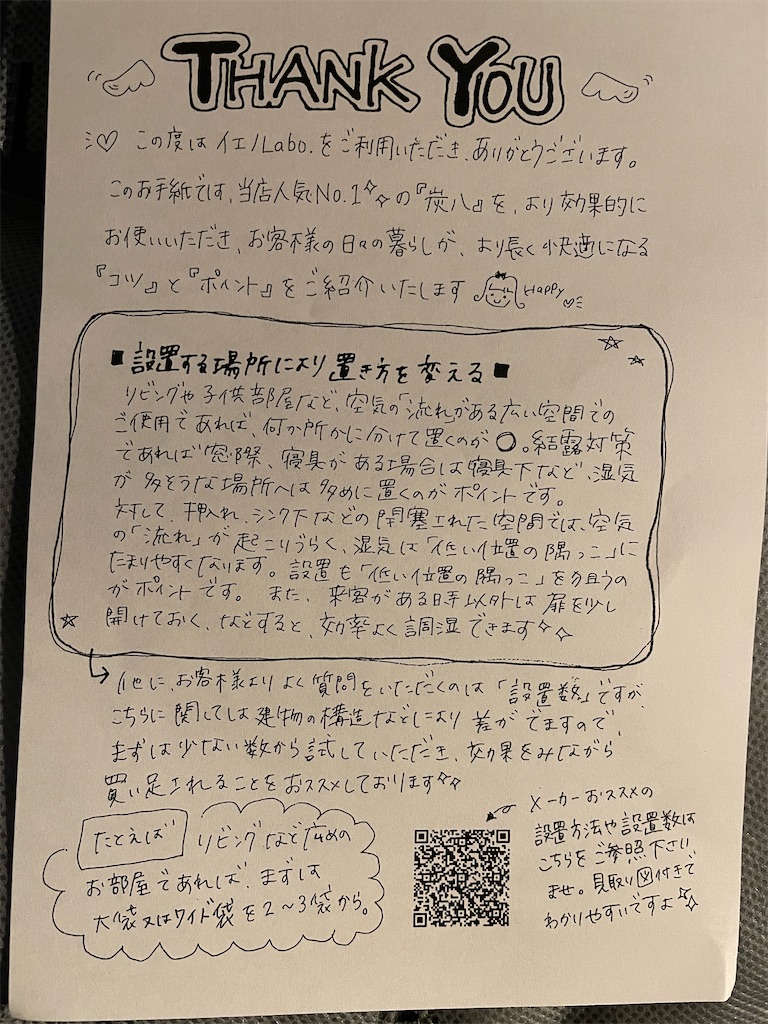 THANK YOU
この度は イエノLabo. をご利用いただき、ありがとうございます。
このお手紙では、当店人気No.1の『炭八』を、より効果的に
お使いいただき、お客様の日々の暮らしが、より長く快適になる
『コツ』と『ポイント』をご紹介いたします Happy
■設置する場所により置き方を変える■
リビングや子供部屋など、空気の「流れ」がある広い空間での
ご使用であれば、何か所かに分けて置くのが〇。結露対策
であれば窓際、寝具がある場合は寝具下など、湿気
が多そうな場所へは多めに置くのがポイントです。
対して、押入れ、シンク下などの閉塞された空間では、空気
の「流れ」が起こりづらく、湿気は「低い位置の隅っこ」に
たまりやすくなります。設置も「低い位置の隅っこ」を狙うの
がポイントです。また、来客がある時以外は扉を少し
開けておく、などすると、効率よく調湿できます
他に、お客様よりよく質問をいただくのは「設置数」ですが、
こちらに関しては建物の構造などにより差がでますので、
まずは少ない数から試していただき、効果をみながら
買い足されることをおススメしております
たとえば リビングなど広めの
お部屋であれば、まずは
大袋又はワイド袋を2〜3袋から。
メーカーおススメの
設置方法や設置数は
こちらをご参照下さい
ませ。見取り図付きで
わかりやすいですよ